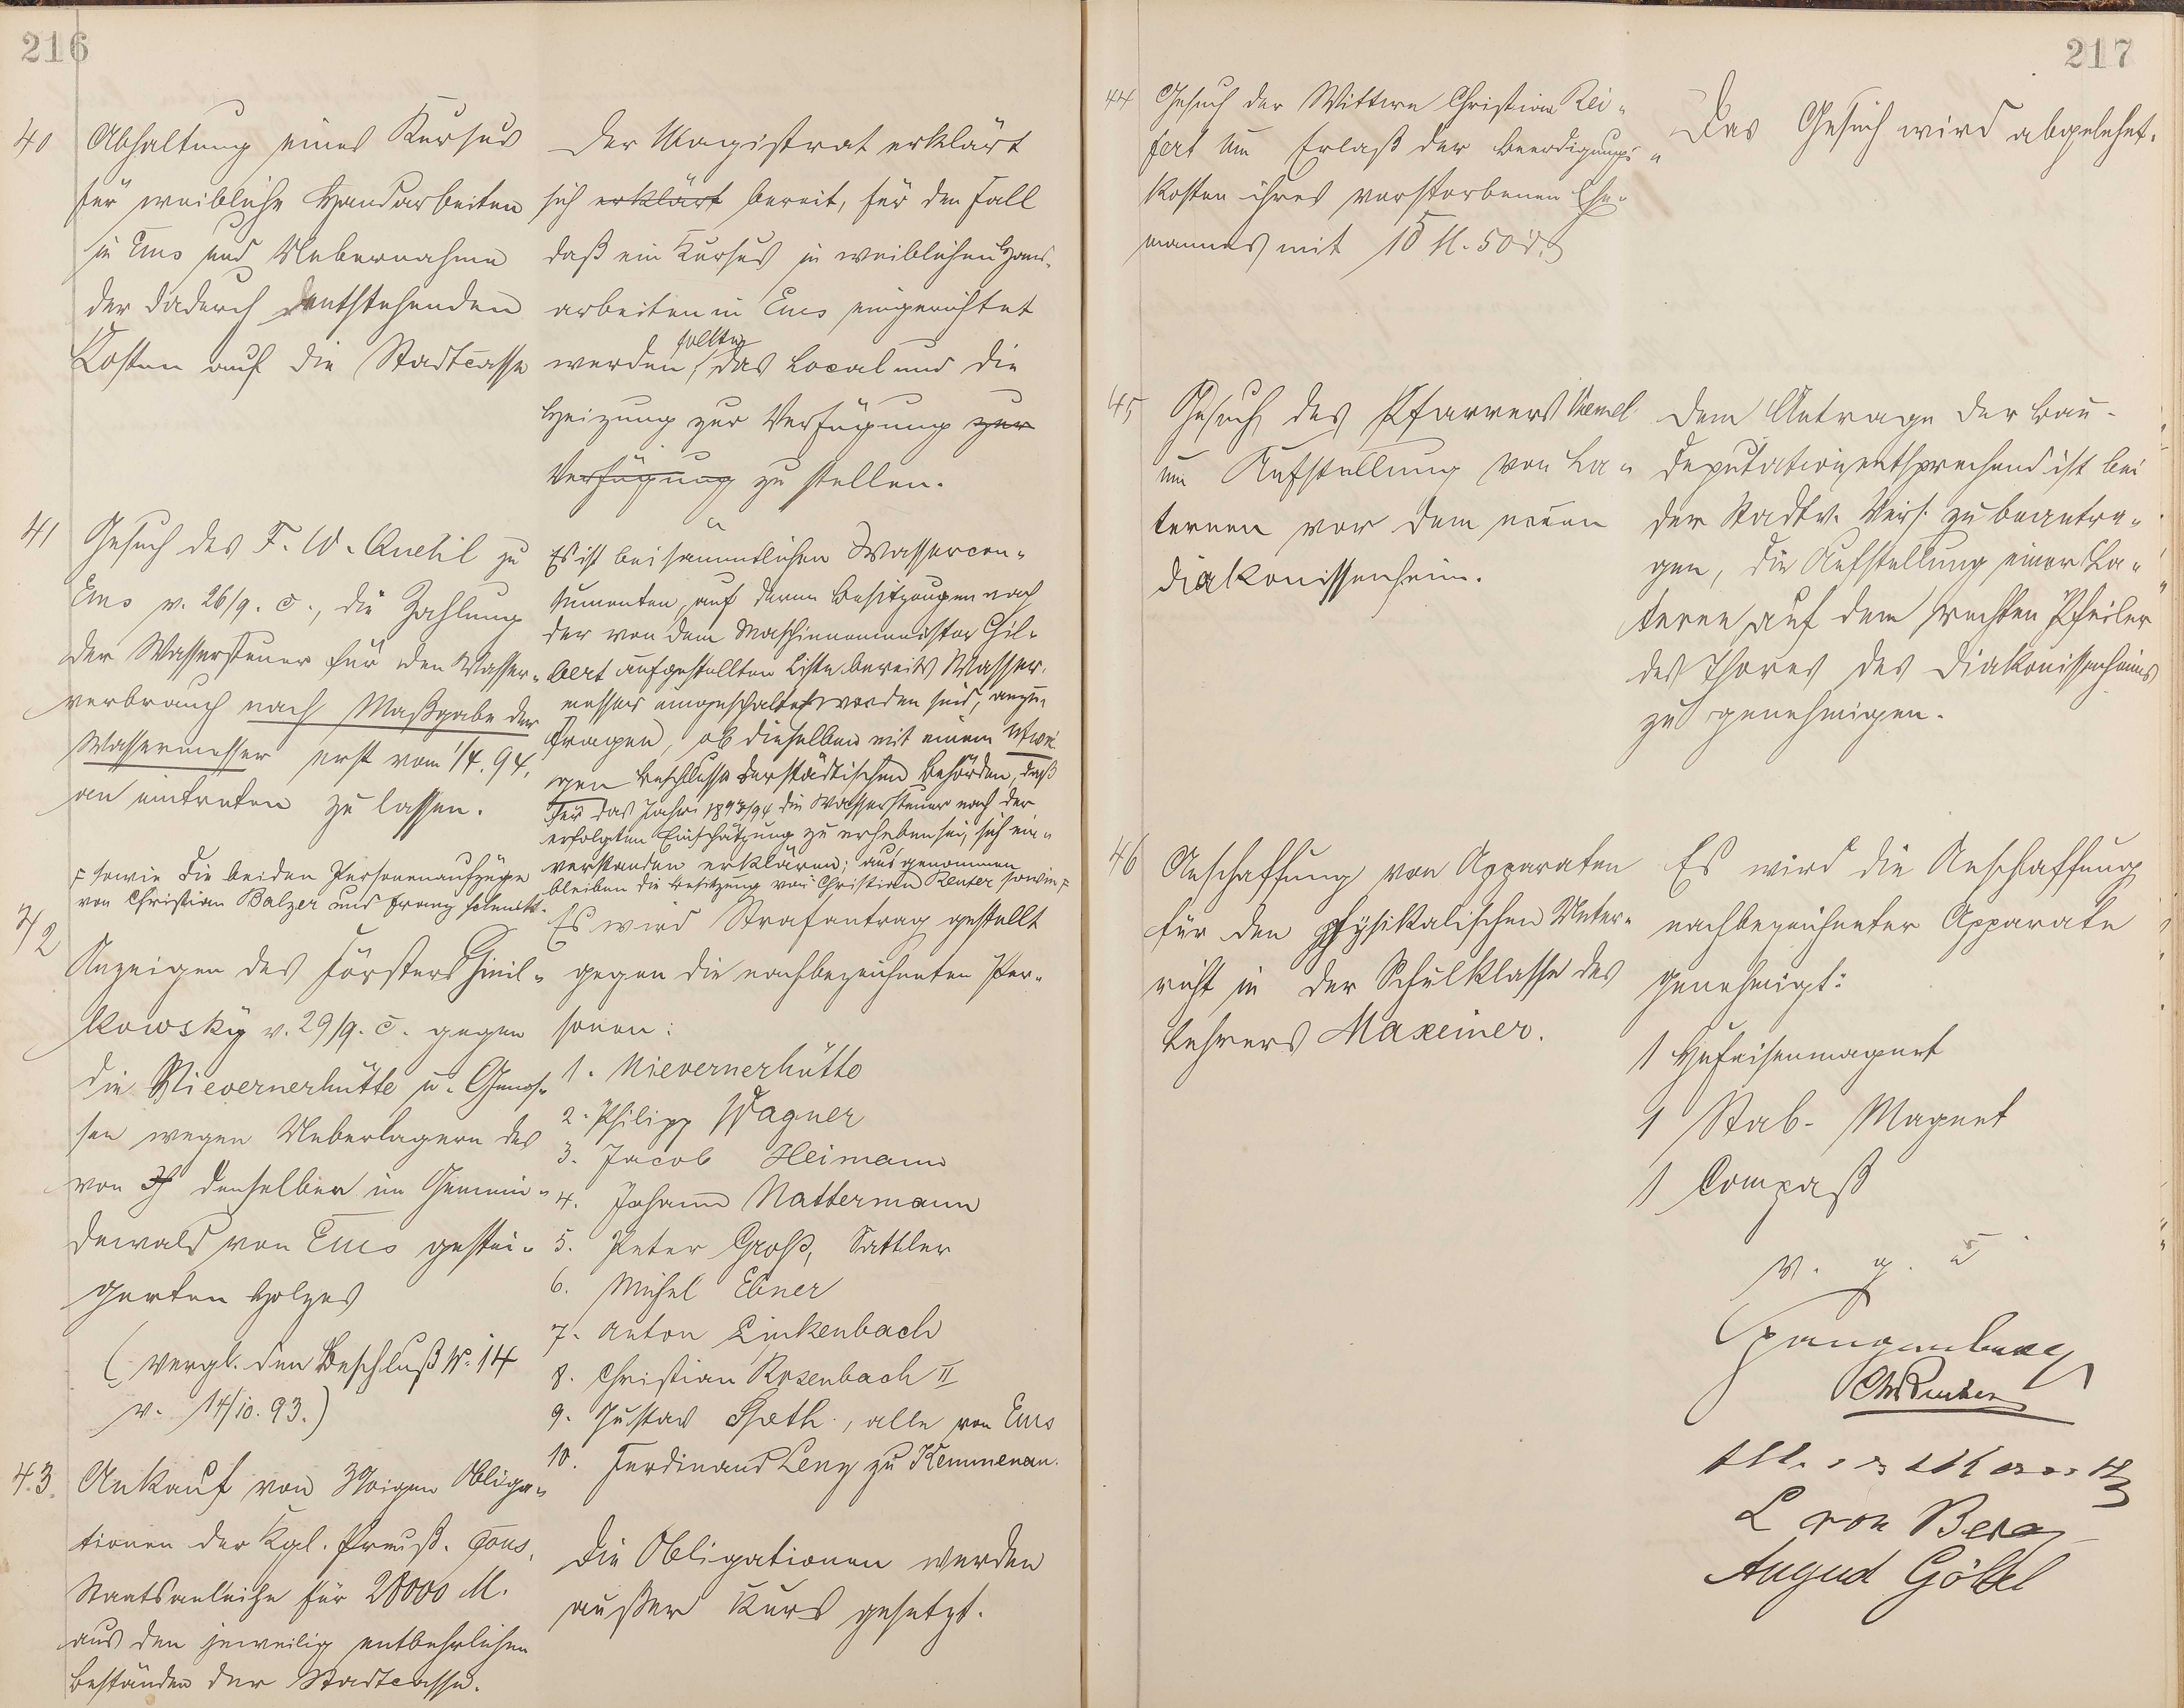 216
40
Abhaltung eines Kursus
für weibliche Handarbeiten
in Ems und Uebernahme
der dadurch entstehenden
Kosten auf die Stadtcasse
Der Magistrat erklärt
sich erklärt bereit, für den Fall
daß ein Kursus in weiblichen Hand-
arbeiten in Ems eingerichtet
werden sollte, das Local und die
Heizung zur Verfügung zur
Verfügung zu stellen.
41
Gesuch des F. W. Quehl zu
Ems v. 26/9. c., die Zahlung
der Wassersteuer für den Wasser-
verbrauch nach Maßgabe der
Wassermesser erst vom 1/4. 94.
an eintreten zu lassen.
Es ist bei sämmtlichen Wassercon-
sumenten, auf deren Besitzungen nach
der von dem Maschinenmeister Gil-
bert aufgestellten Liste bereits Wasser-
messer eingeschaltet worden sind, anzu-
fragen, ob dieselben mit einem
gen Beschlusse der städtischen Behörden, daß
für das Jahr 1893/94 die Wassersteuer nach der
erfolgten Einschätzung zu erheben sei, sich ein-
verstanden erklären; ausgenommen
bleiben die Besitzung von Christian Reuter sowie
sowie die beiden Personenaufzüge
von Christian Balzer und Franz Schmitt.
42
Anzeigen des Försters
kowsky v. 29/9. c. gegen
die Nievernerhütte u. Genos-
sen wegen Ueberlagern des
von denselben im Gemein-
dewald von Ems gestei-
gerten Holzes
(vergl. den Beschluß Nr. 14
v. 14/10. 93.)
Es wird Strafantrag gestellt
gegen die nachbezeichneten Per-
sonen:
1. Nievernerhütte
2. Philipp Wagner
3. Jacob Heimann
4. Johann Nattermann
5. Peter Groß, Sattler
6. Michel Ebner
7. Anton Linkenbach
8. Christian Rosenbach II
9. Gustav Späth, alle von Ems
10. Ferdinand Lenz zu Kemmenau.
43.
Ankauf von 3%igen Obliga-
tionen der Kgl. Preuß. cons.
Staatsanleihe für 28000 M.
aus den jeweilig entbehrlichen
Beständen der Stadtcasse.
Die Obligationen werden
außer Kurs gesetzt.
217
44
Gesuch der Wittwe Christian Rei-
fert um Erlaß der Beerdigungs-
kosten ihres verstorbenen Ehe-
mannes mit 15 M. 50 d.
Das Gesuch wird abgelehnt.
45
Gesuch des Pfarrers Vömel
um Aufstellung von La-
ternen vor dem neuen
Diakonissenheim.
Dem Antrage der Bau-
deputation entsprechend ist bei
der Stadtv. Vers. zu beantra-
gen, die Aufstellung einer La-
terne auf dem rechten Pfeiler
des Thores des Diakonissenheims
zu genehmigen.
46
Anschaffung von Apparaten
für den physikalischen Unter-
richt in der Schulklasse des
Lehrers Maxeiner.
Es wird die Anschaffung
nachbezeichneter Apparate
genehmigt:
1 Hufeisenmagnet
1 Stab-Magnet
1 Compaß
v. g. u.
Spangenberg
L von Berg
August Göbel